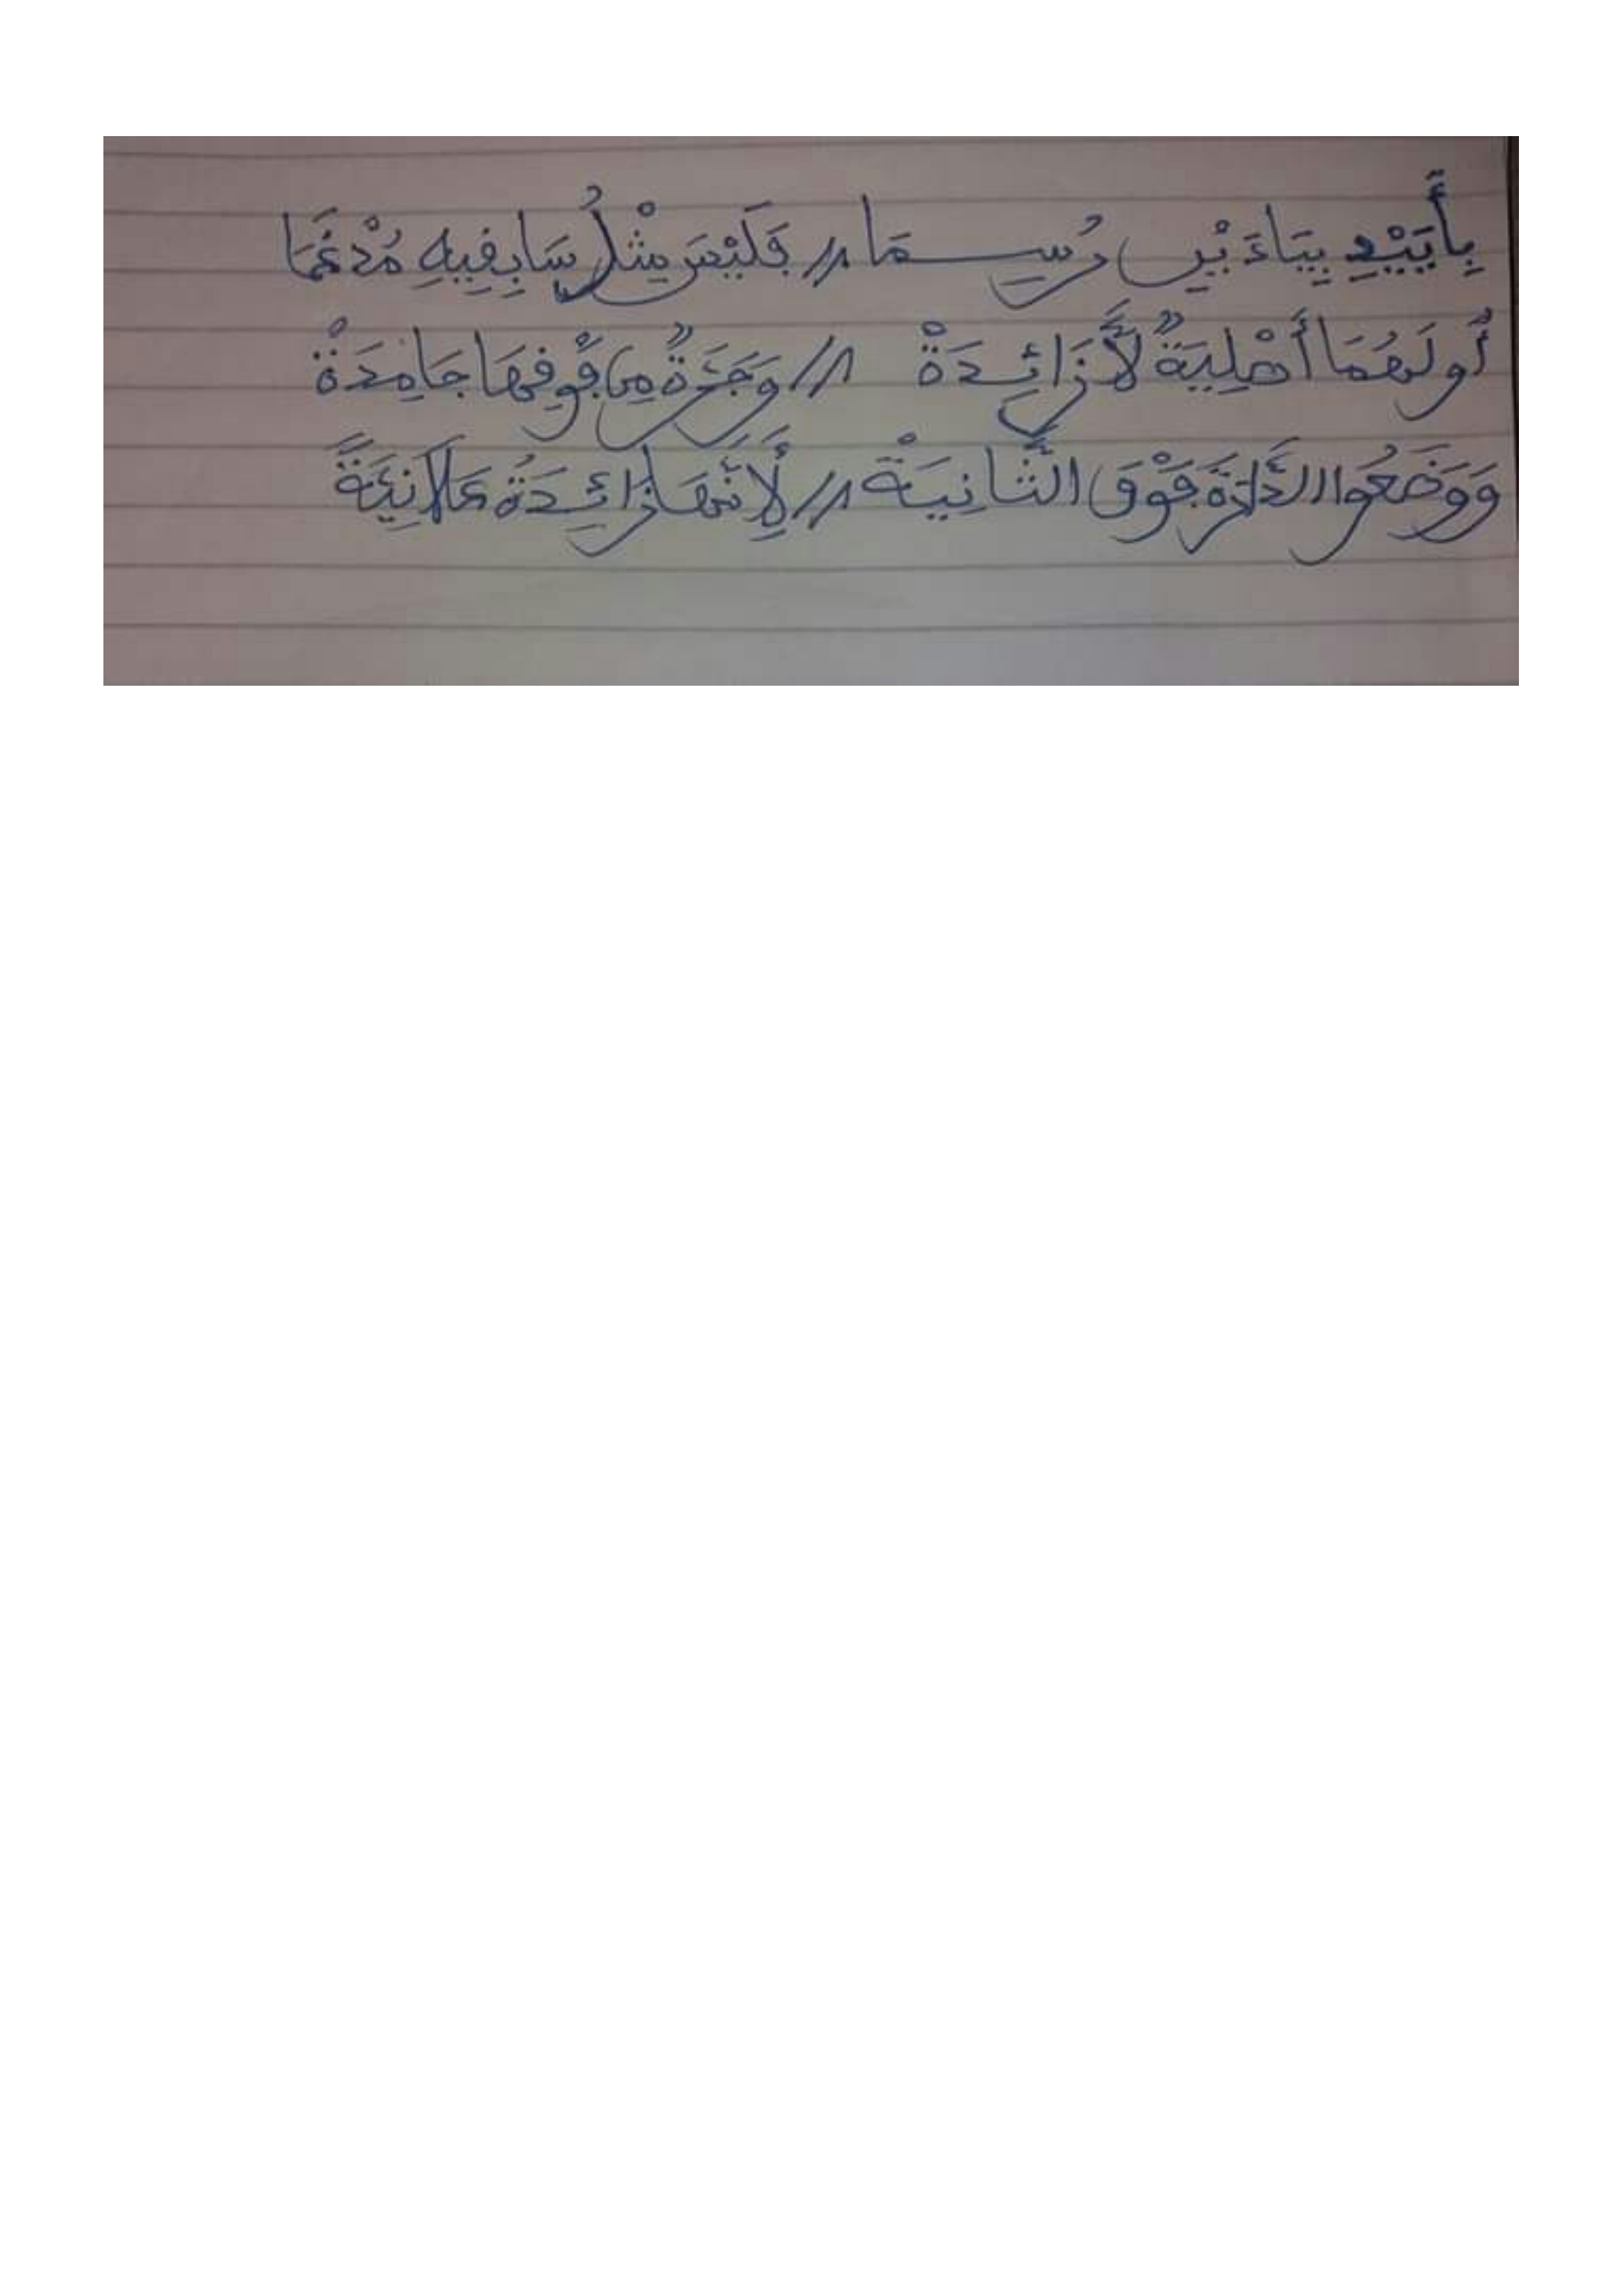 بِأَيَيْدٍ بِيَاءَيْنِ رُسِمَا // فَلَيْسَ مِثْلُ سَابِقِيهِ مُدْغَمَا
أُولَهُمَا أَصْلِيَةٌ لَّا زَائِدَةْ // وَجَرَّةٌ مِن فَوْقِهَا جَامِدَةْ
وَوَضَعُوا الدَّارَةَ فَوْقَ الثَّانِيَةْ // لِأَنَّهَا زَائِدَةُ عَلَانِيَةً